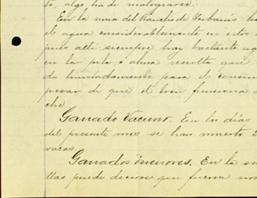 to, algo ha de malograrse.
En la zona del Rancho de ha
el agua considerablemente en
pués allí siempre hay bastante ag
en la pila, ahora resulta que
da para el consum
pesar de que el bien funciona
che
Ganado Vacuno. En los días
del presente mes se han muerto
vacas
Ganados menores. En la
llas puede decirse que fueron